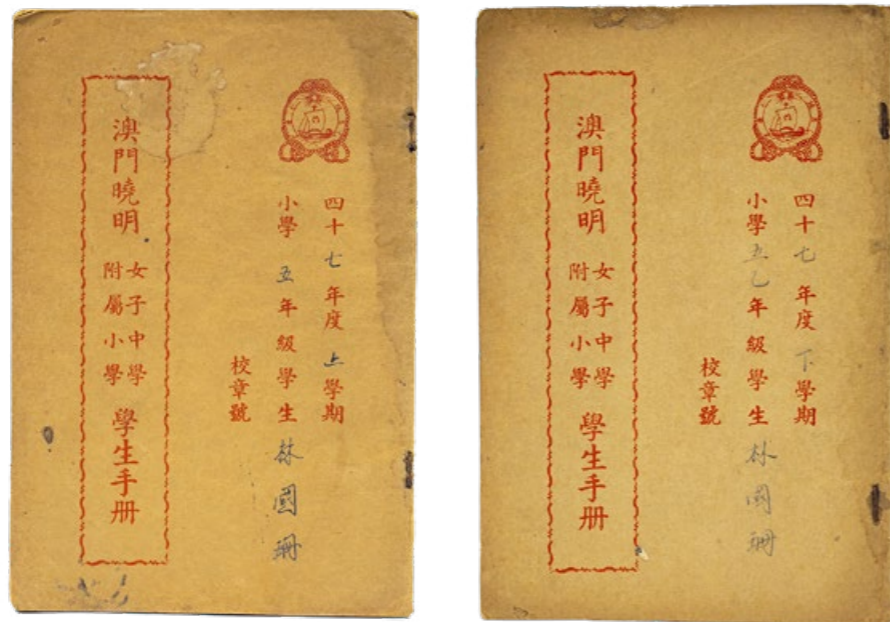 四十七年度上學期
小學五年級學生林國珊
校章號
澳門曉明女子中學附屬小學學生手册
四十七年度下學期
小學五乙年級學生林國珊
校章號
澳門曉明女子中學附屬小學學生手册